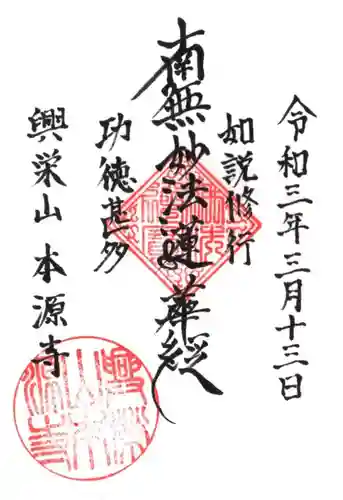 令和三年三月十三日
如説修行
南無妙法蓮華経
功徳甚多
興栄山本源寺